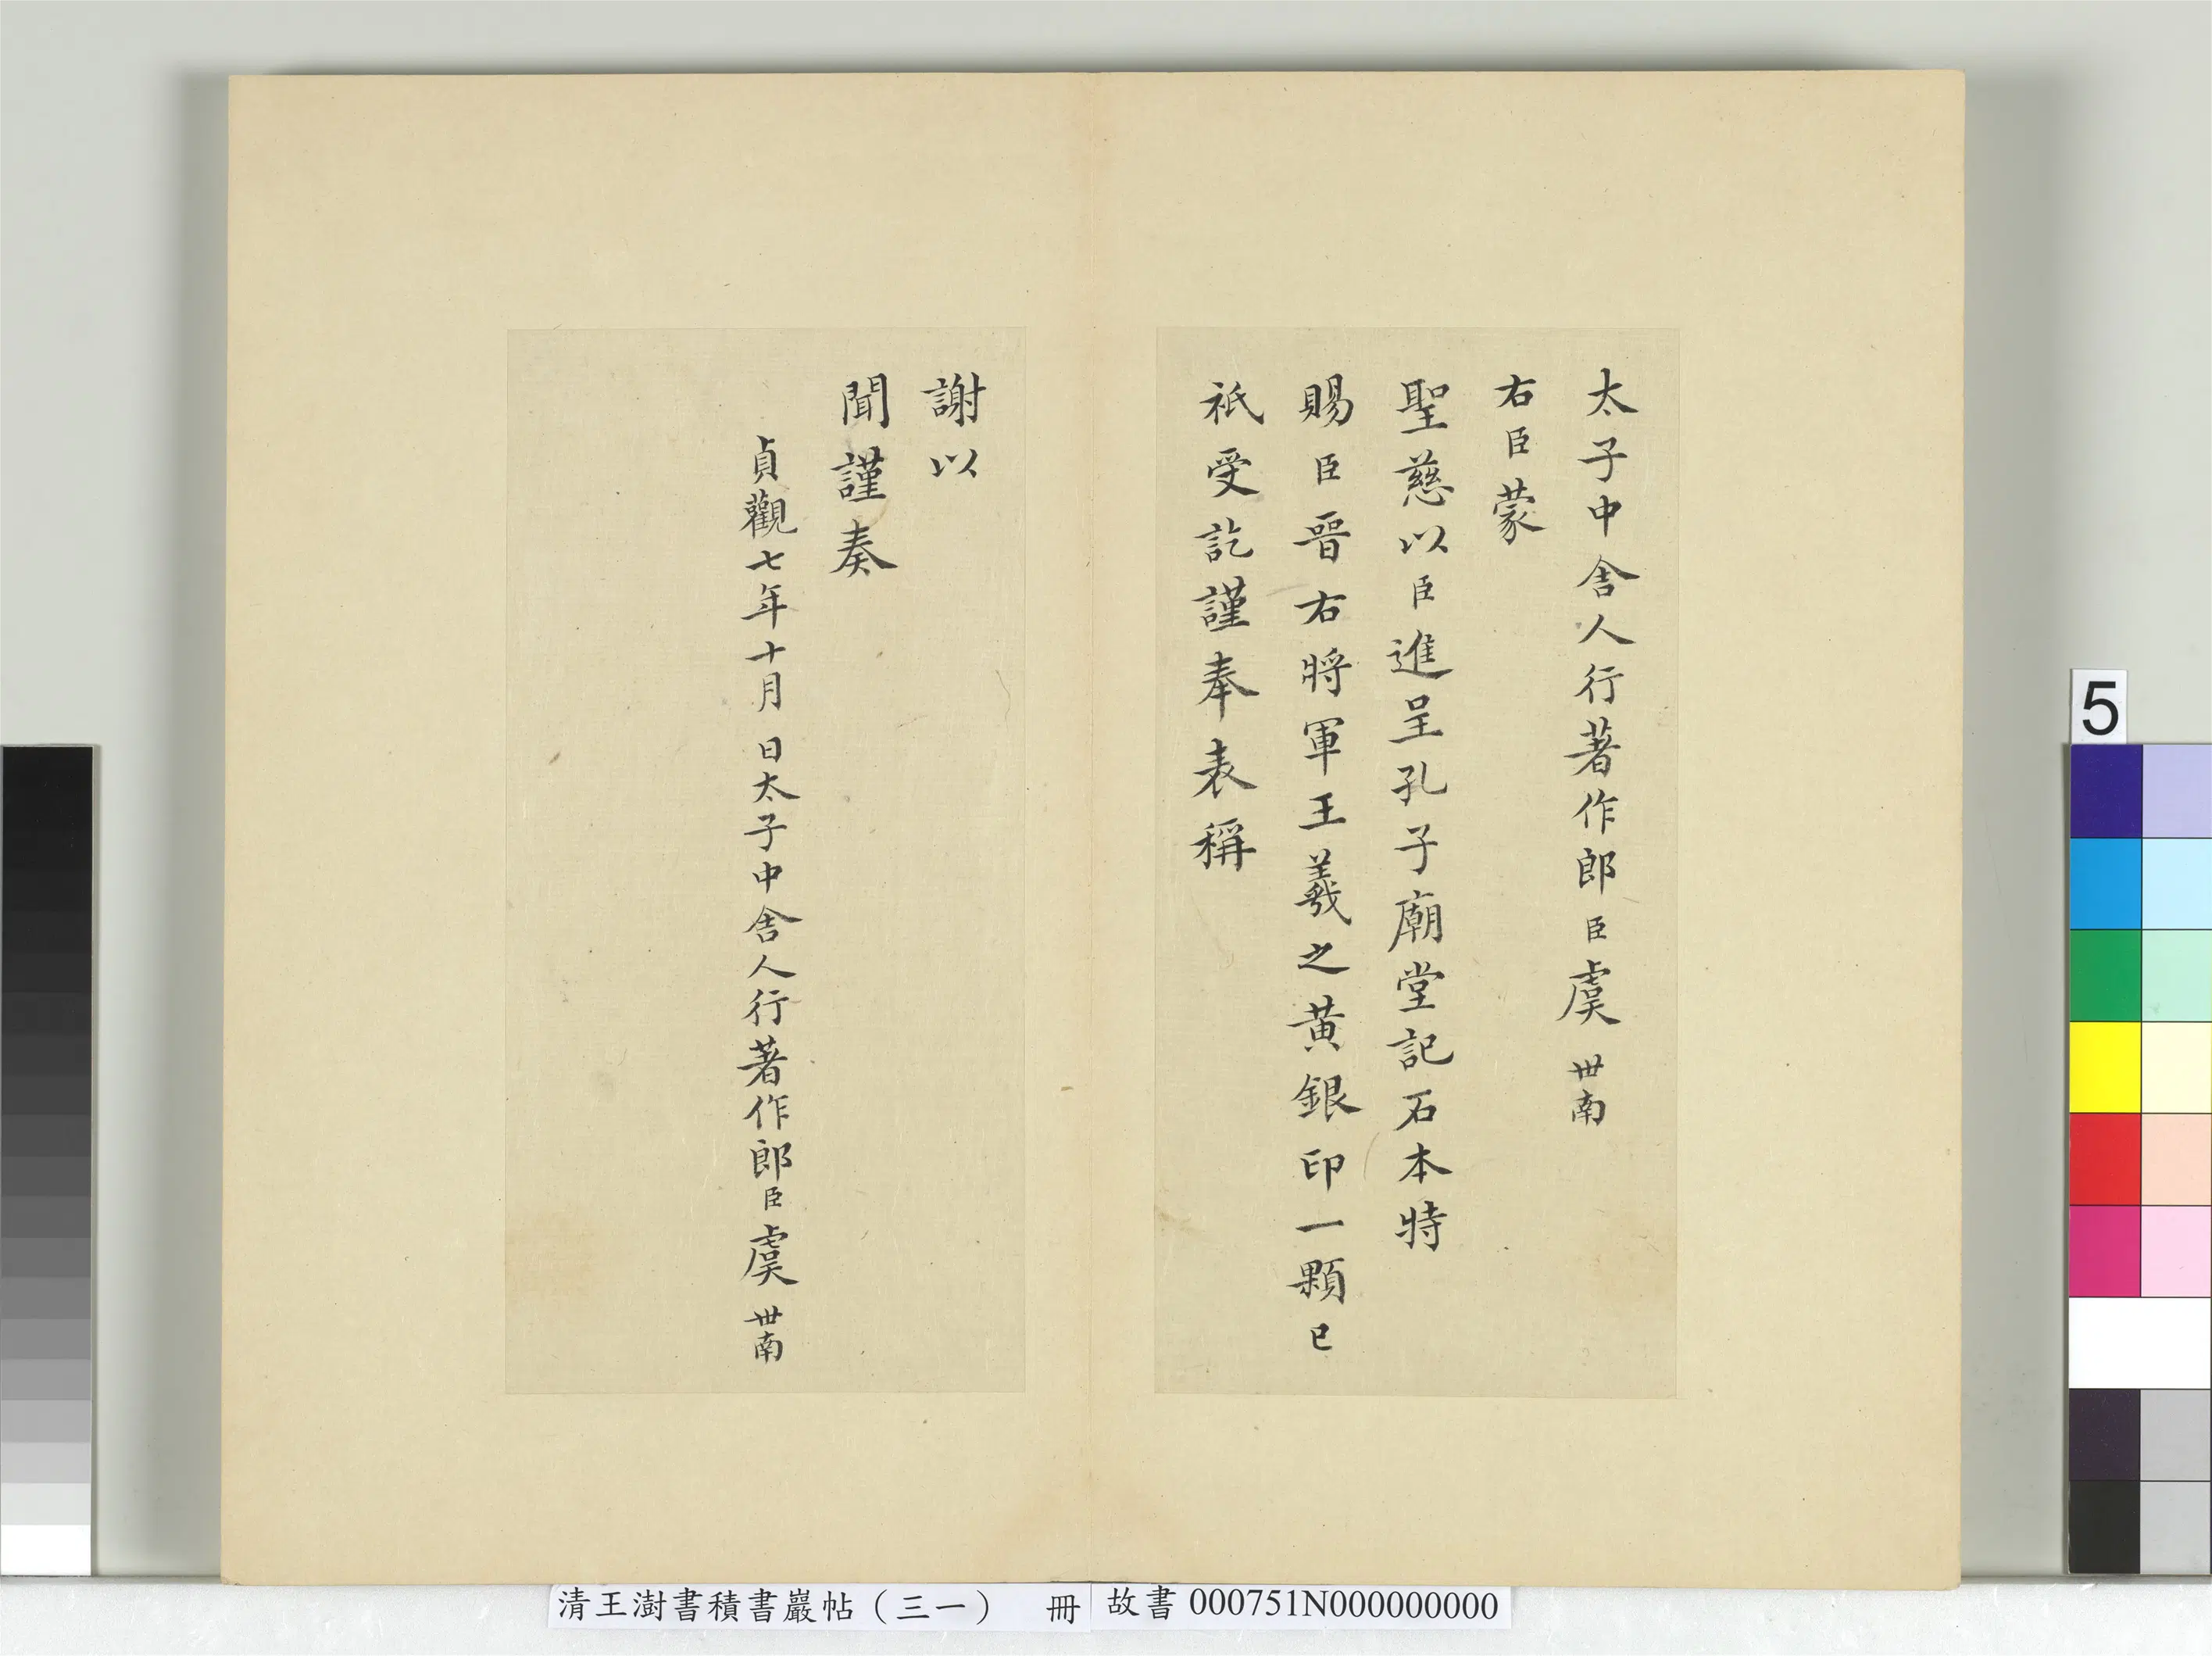 太子中舍人行著作郎臣虞世南
右臣蒙
聖慈以臣進呈孔子廟堂記石本特
賜臣晉右將軍王羲之黃銀印一顆已
祇受訖謹奉表稱
謝以
聞謹奏
貞觀七年十月 日太子中舍人行著作郎臣虞世南
5
清王澍書積書巖帖（三一） 冊
故書 000751N000000000